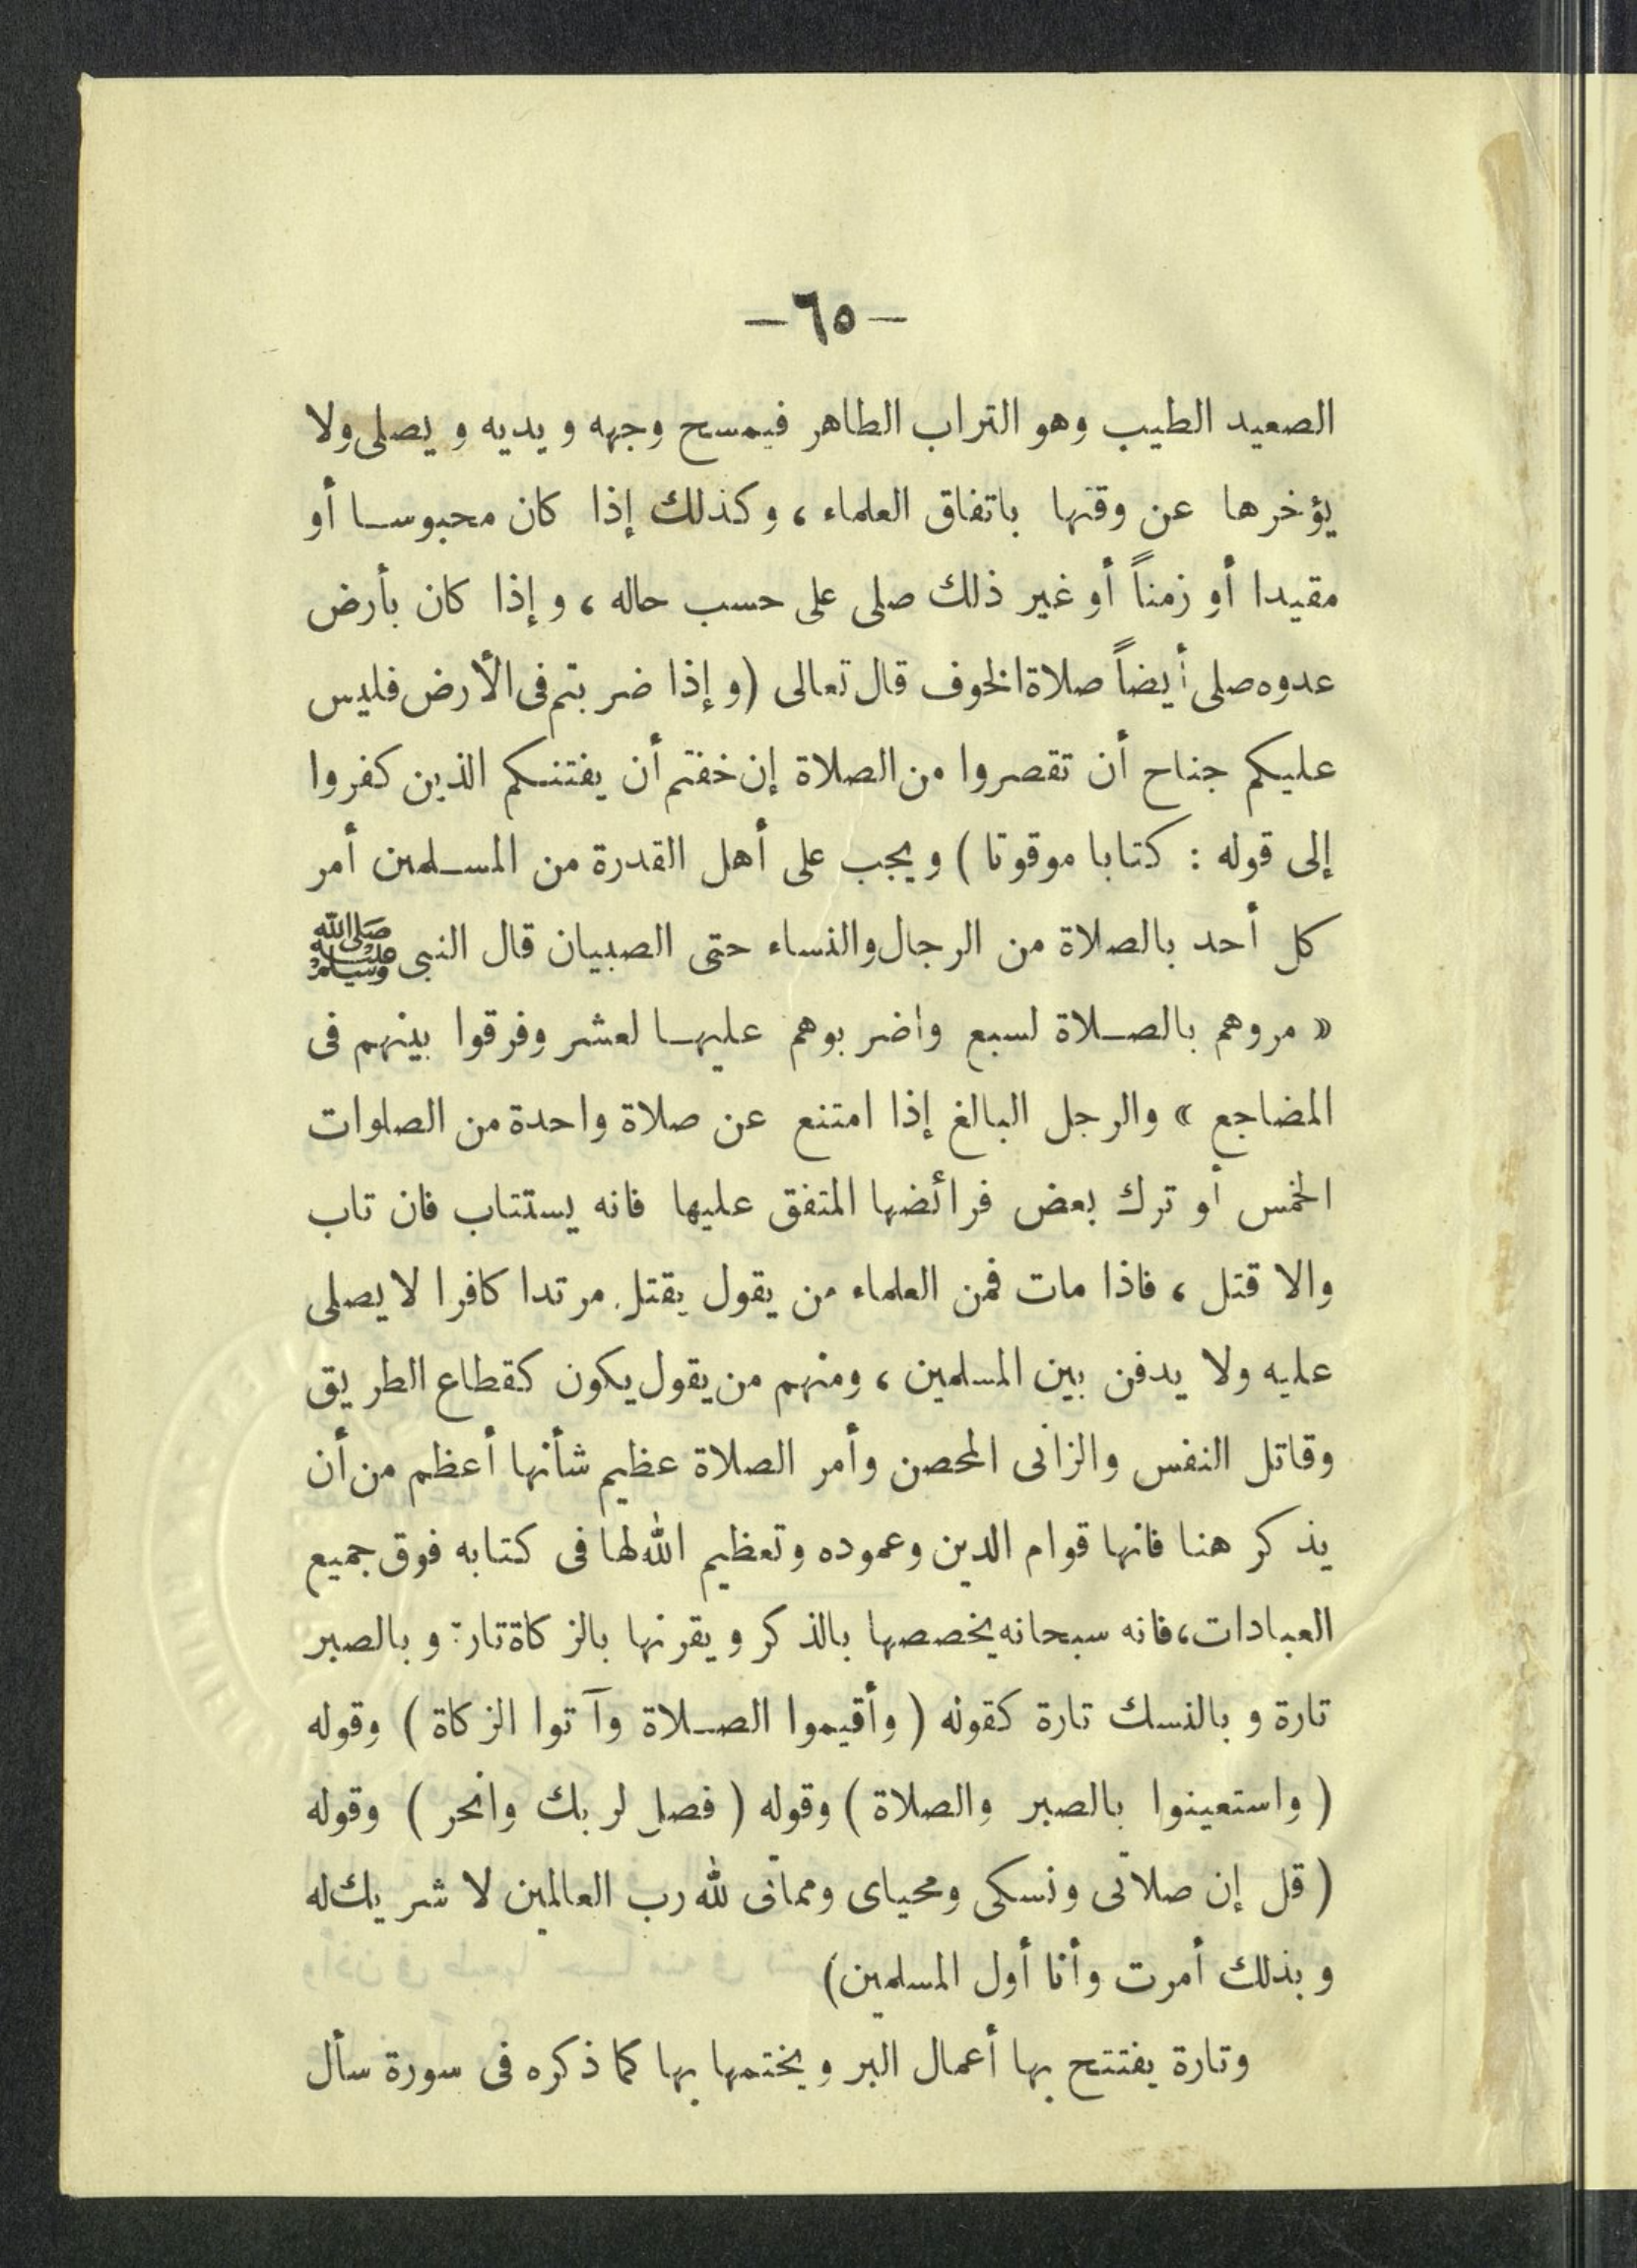 —٦٥—
الصعيد الطيب وهو التراب الطاهر فيمسح وجهه ويديه ويصلى ولا
يؤخرها عن وقتها باتفاق العلماء ، وكذلك إذا كان محبوسا أو
مقيدا أو زمناً أو غير ذلك صلى على حسب حاله ، وإذا كان بأرض
عدوه صلى أيضاً صلاة الخوف قال تعالى (وإذا ضربتم فى الأرض فليس
عليكم جناح أن تقصروا من الصلاة إن خفتم أن يفتنكم الذين كفروا
إلى قوله : كتابا موقوتا ) ويجب على أهل القدرة من المسلمين أمر
كل أحد بالصلاة من الرجال والنساء حتى الصبيان قال النبى ﷺ
« مروهم بالصلاة لسبع واضربوهم عليها لعشر وفرقوا بينهم فى
المضاجع » والرجل البالغ إذا امتنع عن صلاة واحدة من الصلوات
الخمس أو ترك بعض فرائضها المتفق عليها فانه يستتاب فان تاب
والا قتل ، فاذا مات فمن العلماء من يقول يقتل مرتدا كافرا لا يصلى
عليه ولا يدفن بين المسلمين ، ومنهم من يقول يكون كقطاع الطريق
وقاتل النفس والزانى المحصن وأمر الصلاة عظيم شأنها أعظم من أن
يذكر هنا فانها قوام الدين وعموده وتعظيم الله لها فى كتابه فوق جميع
العبادات، فانه سبحانه يخصصها بالذكر ويقرنها بالزكاة تارة وبالصبر
تارة وبالنسك تارة كقوله ( وأقيموا الصلاة وآتوا الزكاة ) وقوله
( واستعينوا بالصبر والصلاة ) وقوله ( فصل لربك وانحر ) وقوله
( قل إن صلاتى ونسكى ومحياى ومماتى لله رب العالمين لا شريك له
وبذلك أمرت وأنا أول المسلمين)
وتارة يفتتح بها أعمال البر ويختمها بها كما ذكره فى سورة سأل